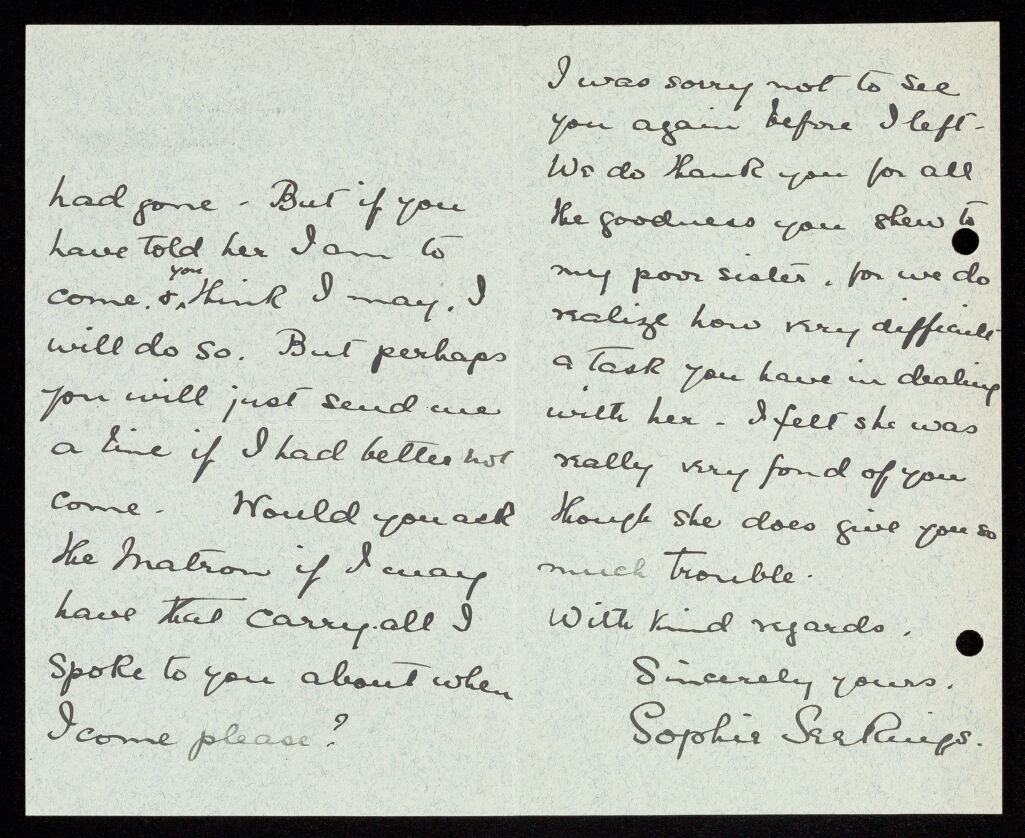 had gone - But if you
have told her I am to
come, & you think I may, I
will do so. But perhaps
you will just send me
a line if I had better not
come - Would you ask
the Matron if I may
have that carry-all I
spoke to you about when
I come please?
I was sorry not to see
you again before I left -
We do thank you for all
the goodness you shew to
my poor sister, for we do
realize how very difficult
a task you have in dealing
with her - I felt she was
really very fond of you
though she does give you so
much trouble.
With kind regards,
Sincerely yours,
Sophie Seekings.